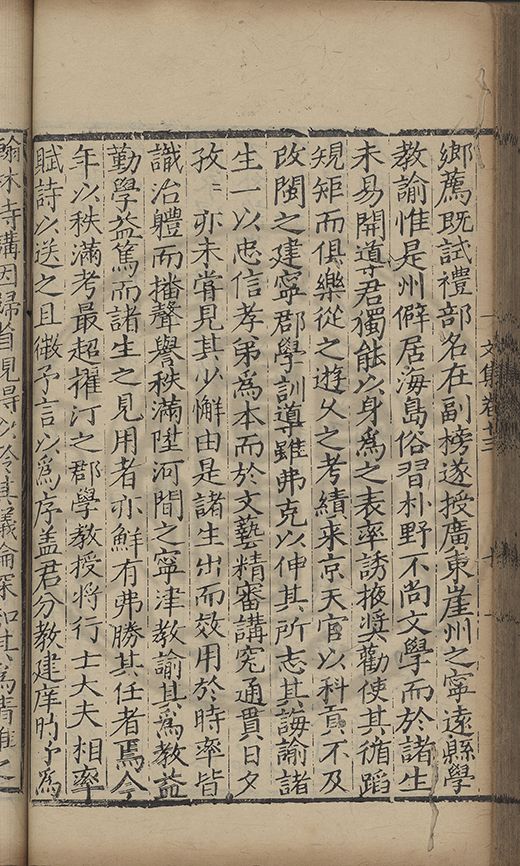 文集卷
鄉薦既試禮部名在副榜遂授廣東崖州之寧遠縣學
教諭惟是州僻居海島俗習朴野不尚文學而於諸生
未易開導君獨能以身爲之表率誘掖奬勸使其循蹈
規矩而俱樂從之遊久之考績来京天官以科貢不及
改閩之建寧郡學訓導雖弗克以伸其所志其誨諭諸
生一以忠信孝弟爲本而於文藝精審講究通貫日夕
孜〻亦未甞見其少懈由是諸生出而效用於時率皆
識治體而播聲譽秩滿陞河間之寧津教諭其爲教益
勤學益篤而諸生之見用者亦鮮有弗勝其任者焉今
年以秩滿考最超擢汀之郡學教授將行士大夫相率
賦詩以送之且徵予言以爲序盖君分教建庠時予爲